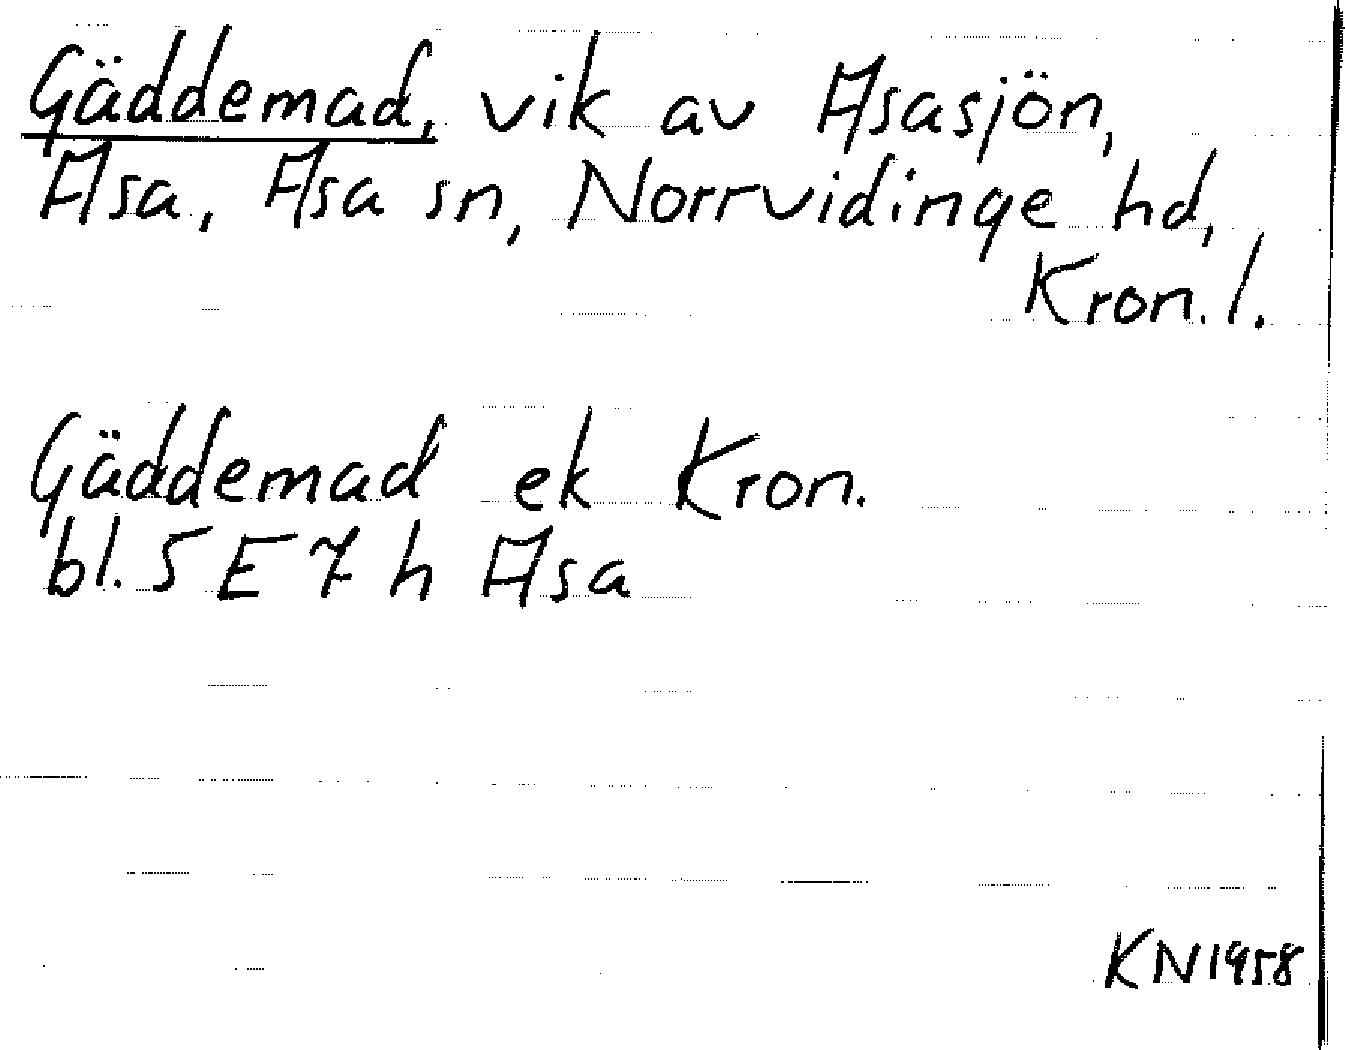 Gäddemad, vik av Asasjön,
Asa, Asa sn, Norrvidinge hd,
Kron. l.
Gäddemad ek Kron.
bl. 5 E 7 h Asa
KN 1958